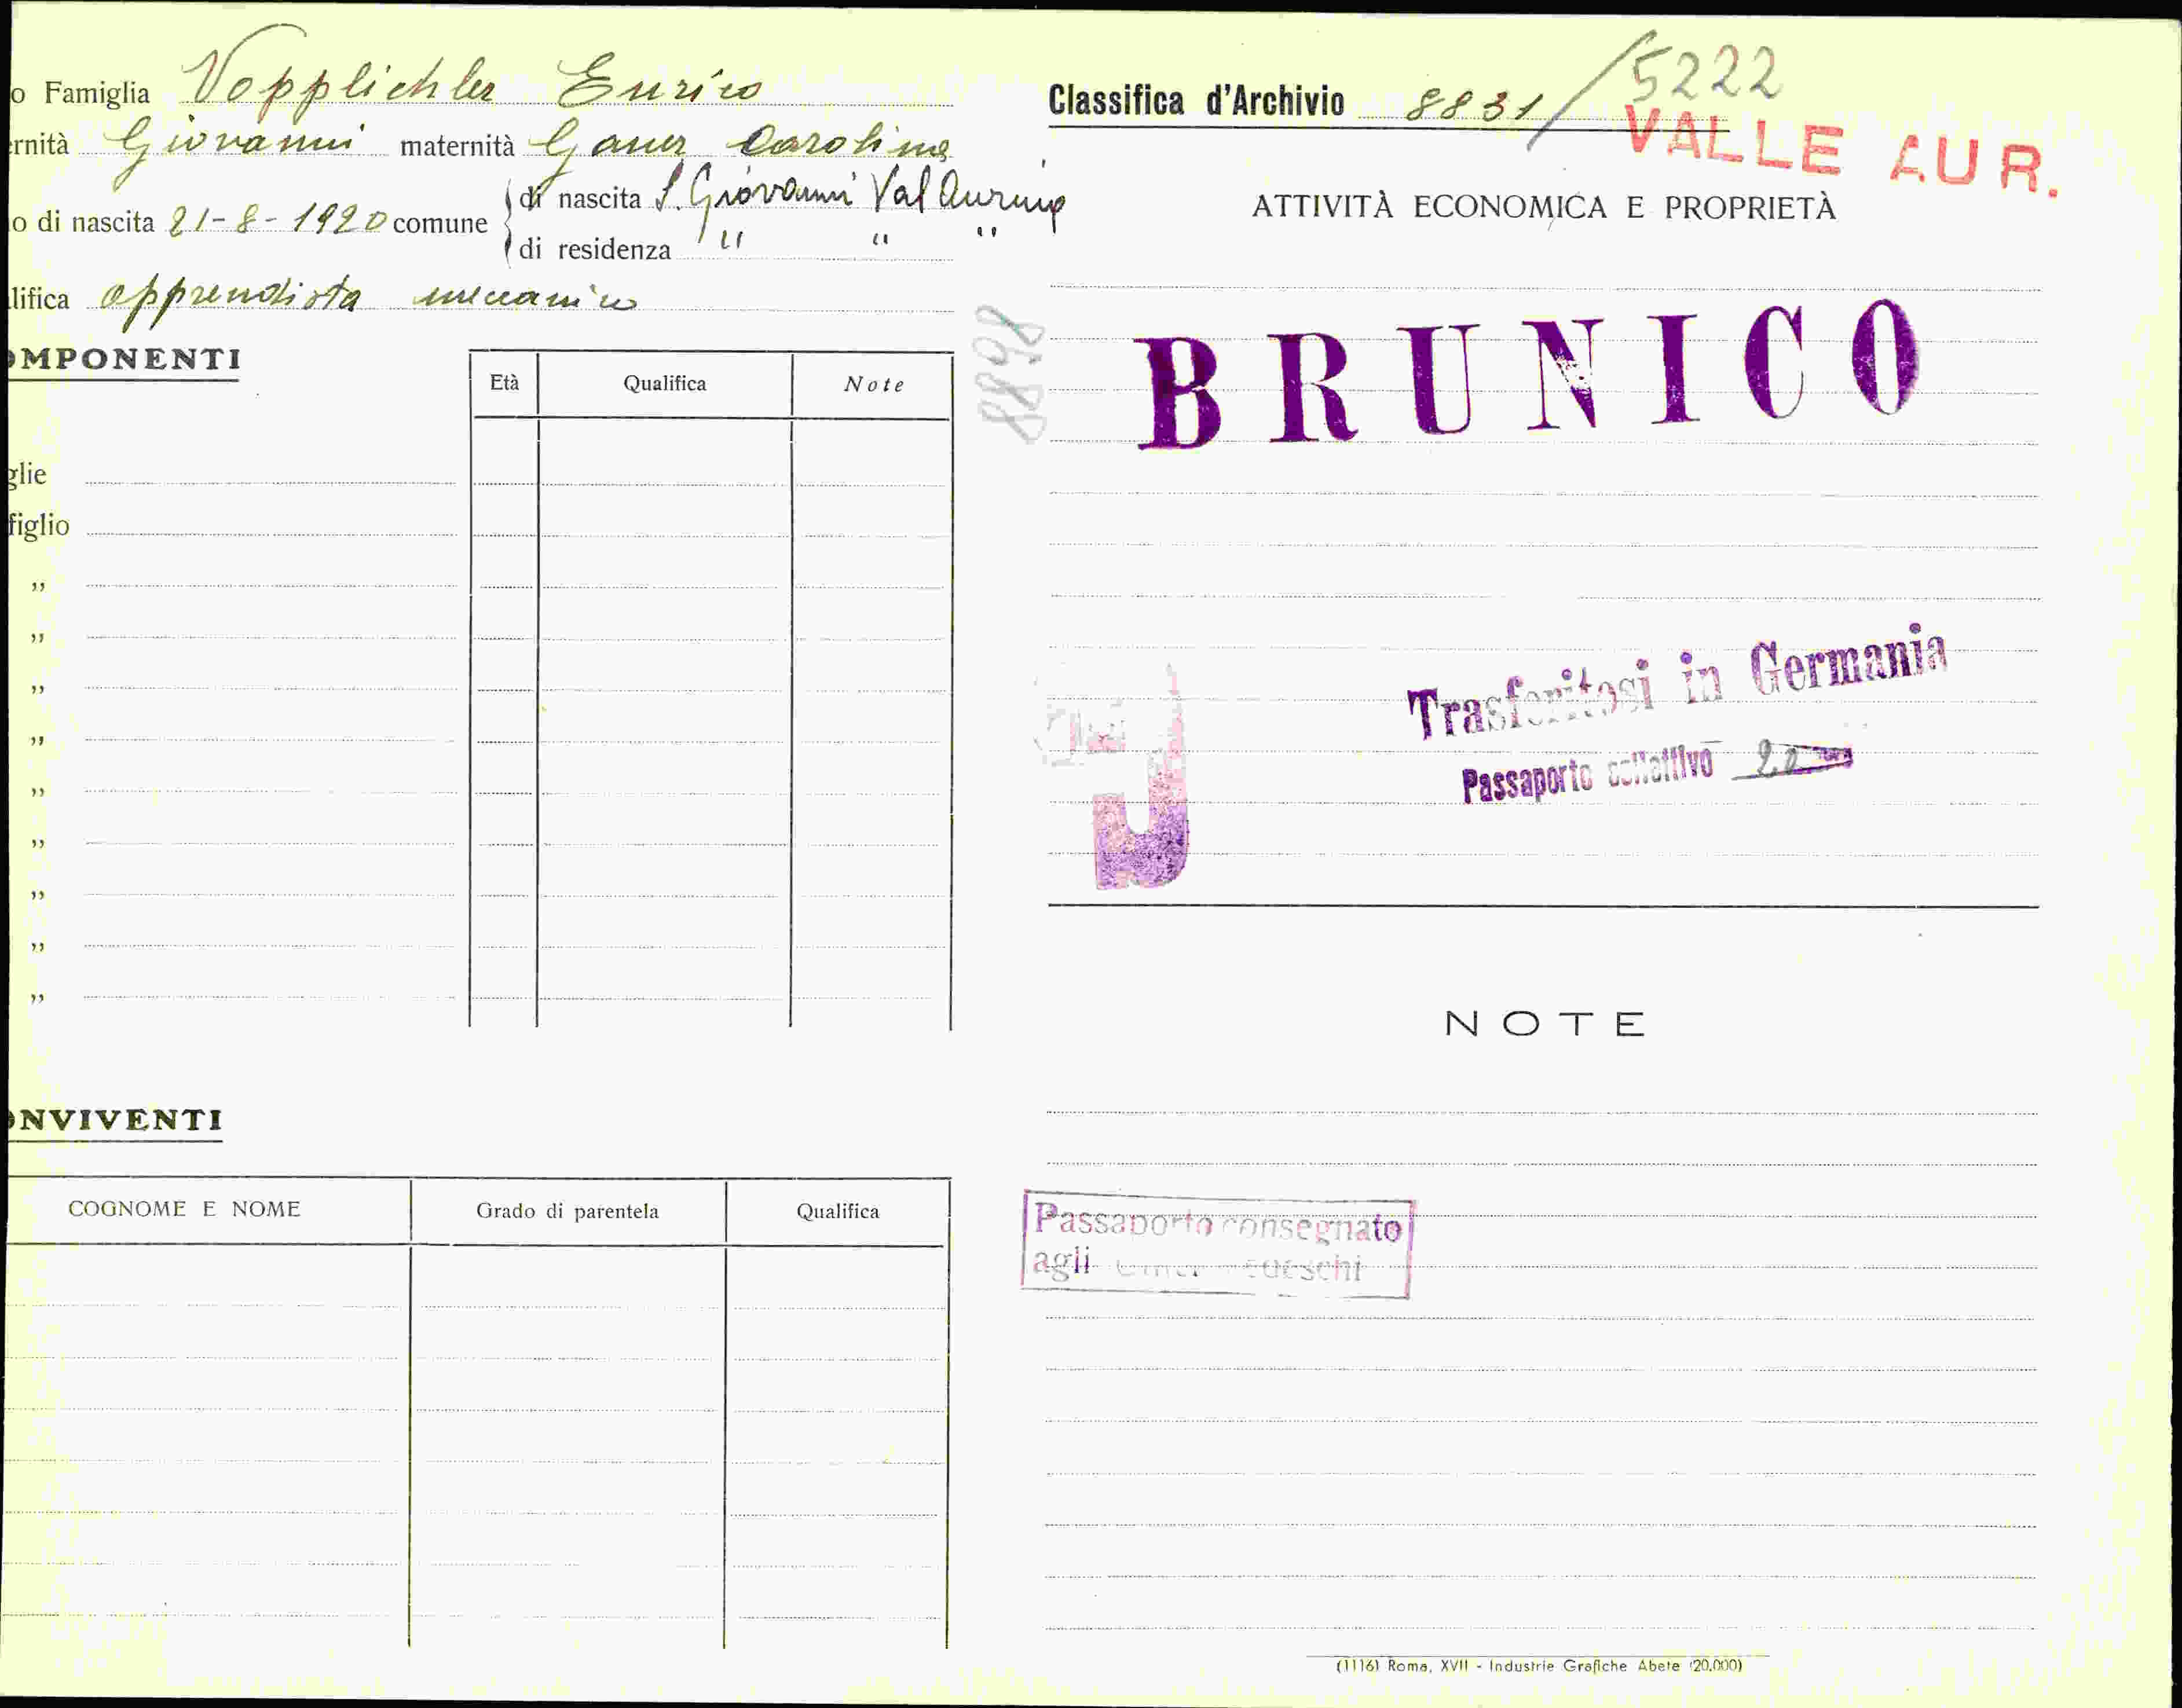 o Famiglia Vopplichler Enrico
ernità Giovanni maternità Gauer Carolina
o di nascita 21-8-1920 comune di nascita S. Giovanni Val Aurina
di residenza " " "
lifica apprendista meccanico
OMPONENTI
Età Qualifica Note
glie
figlio
"
"
"
"
"
"
"
"
"
ONVIVENTI
COGNOME E NOME Grado di parentela Qualifica
Classifica d'Archivio 8831/5222
VALLE AUR.
ATTIVITÀ ECONOMICA E PROPRIETÀ
8898
BRUNICO
Trasferitosi in Germania
Passaporto collettivo
NOTE
Passaporto consegnato
agli tedeschi
(1116) Roma, XVII - Industrie Grafiche Abete (20.000)